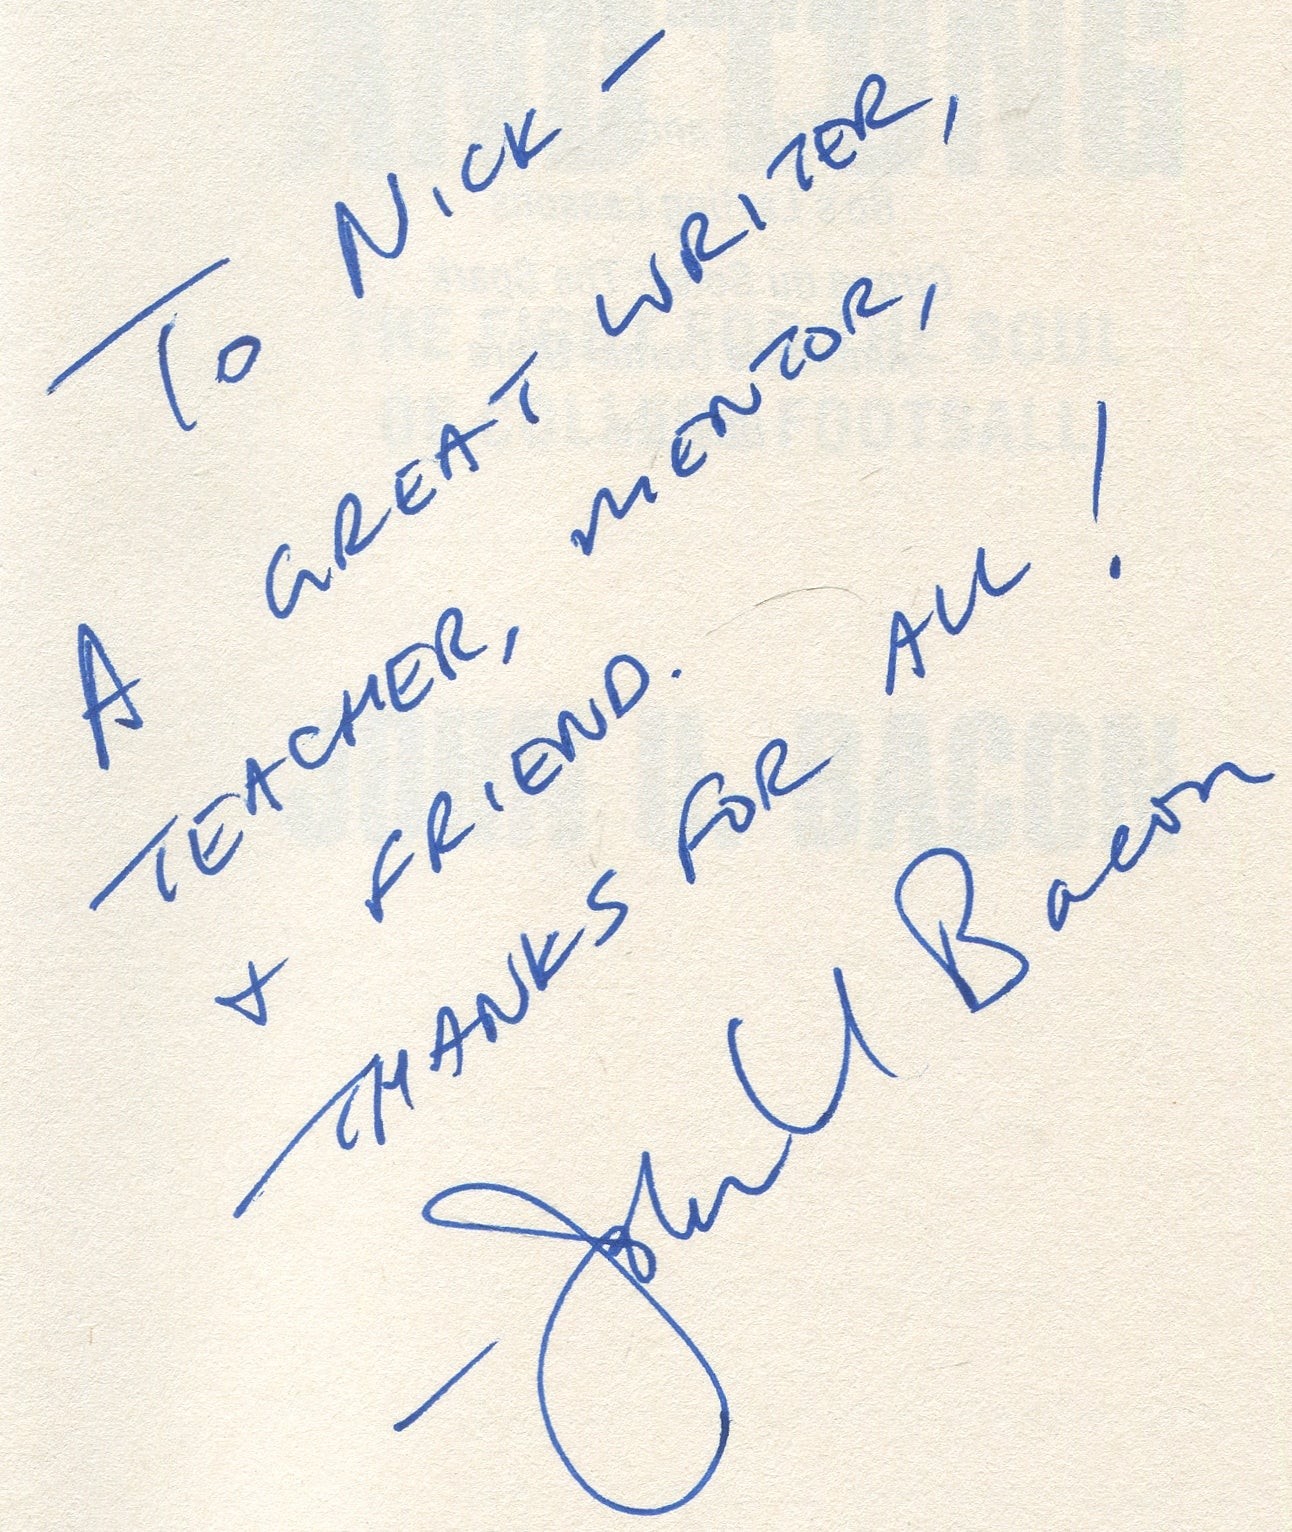 To NICK –
A GREAT WRITER,
TEACHER, MENTOR,
+ FRIEND.
THANKS FOR ALL!
– John U Bacon